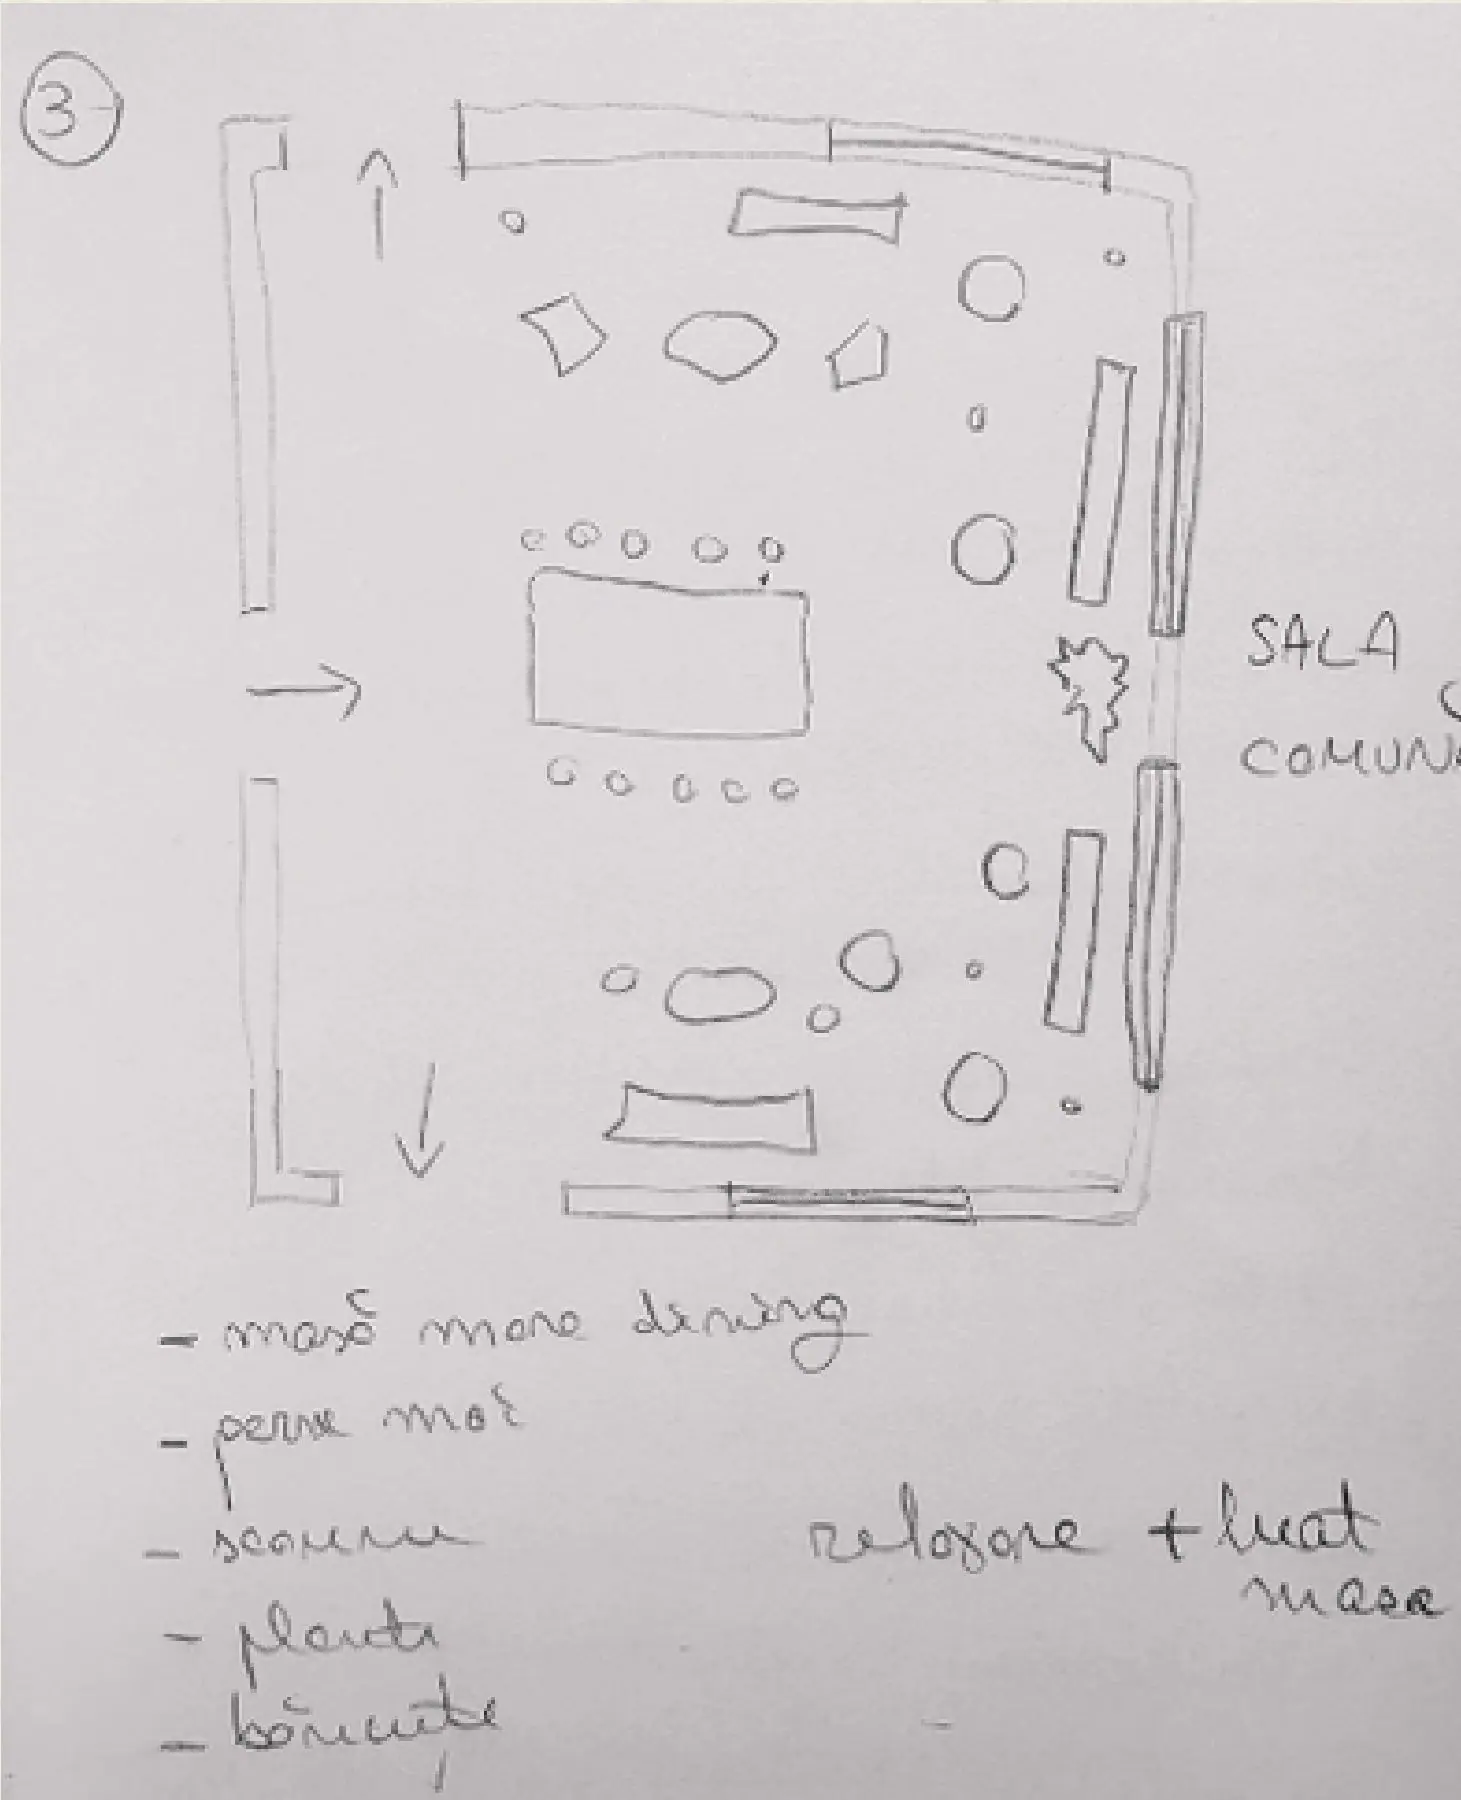 3
SALA
COMUNĂ
- masă mare dining
- perne moi
- scaune
- plante
- băncuțe
relaxare + luat
masa